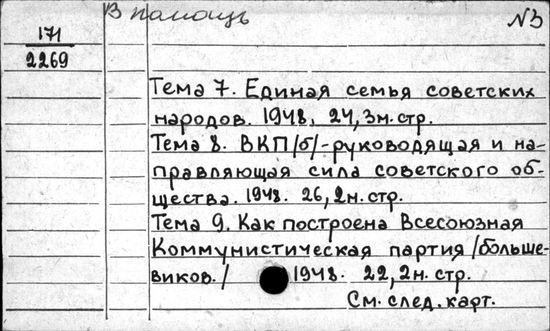 В помощь
№3
171
2269
Тема 7. Единая семья советских
народов. 1948. 24,3н.стр.
Тема 8. ВКП/б/-руководящая и на-
правляющая сила советского об-
щества. 1948. 26,2н.стр.
Тема 9. Как построена Всесоюзная
Коммунистическая партия /больше-
виков./ 1948. 22,2н.стр.
См. след. карт.